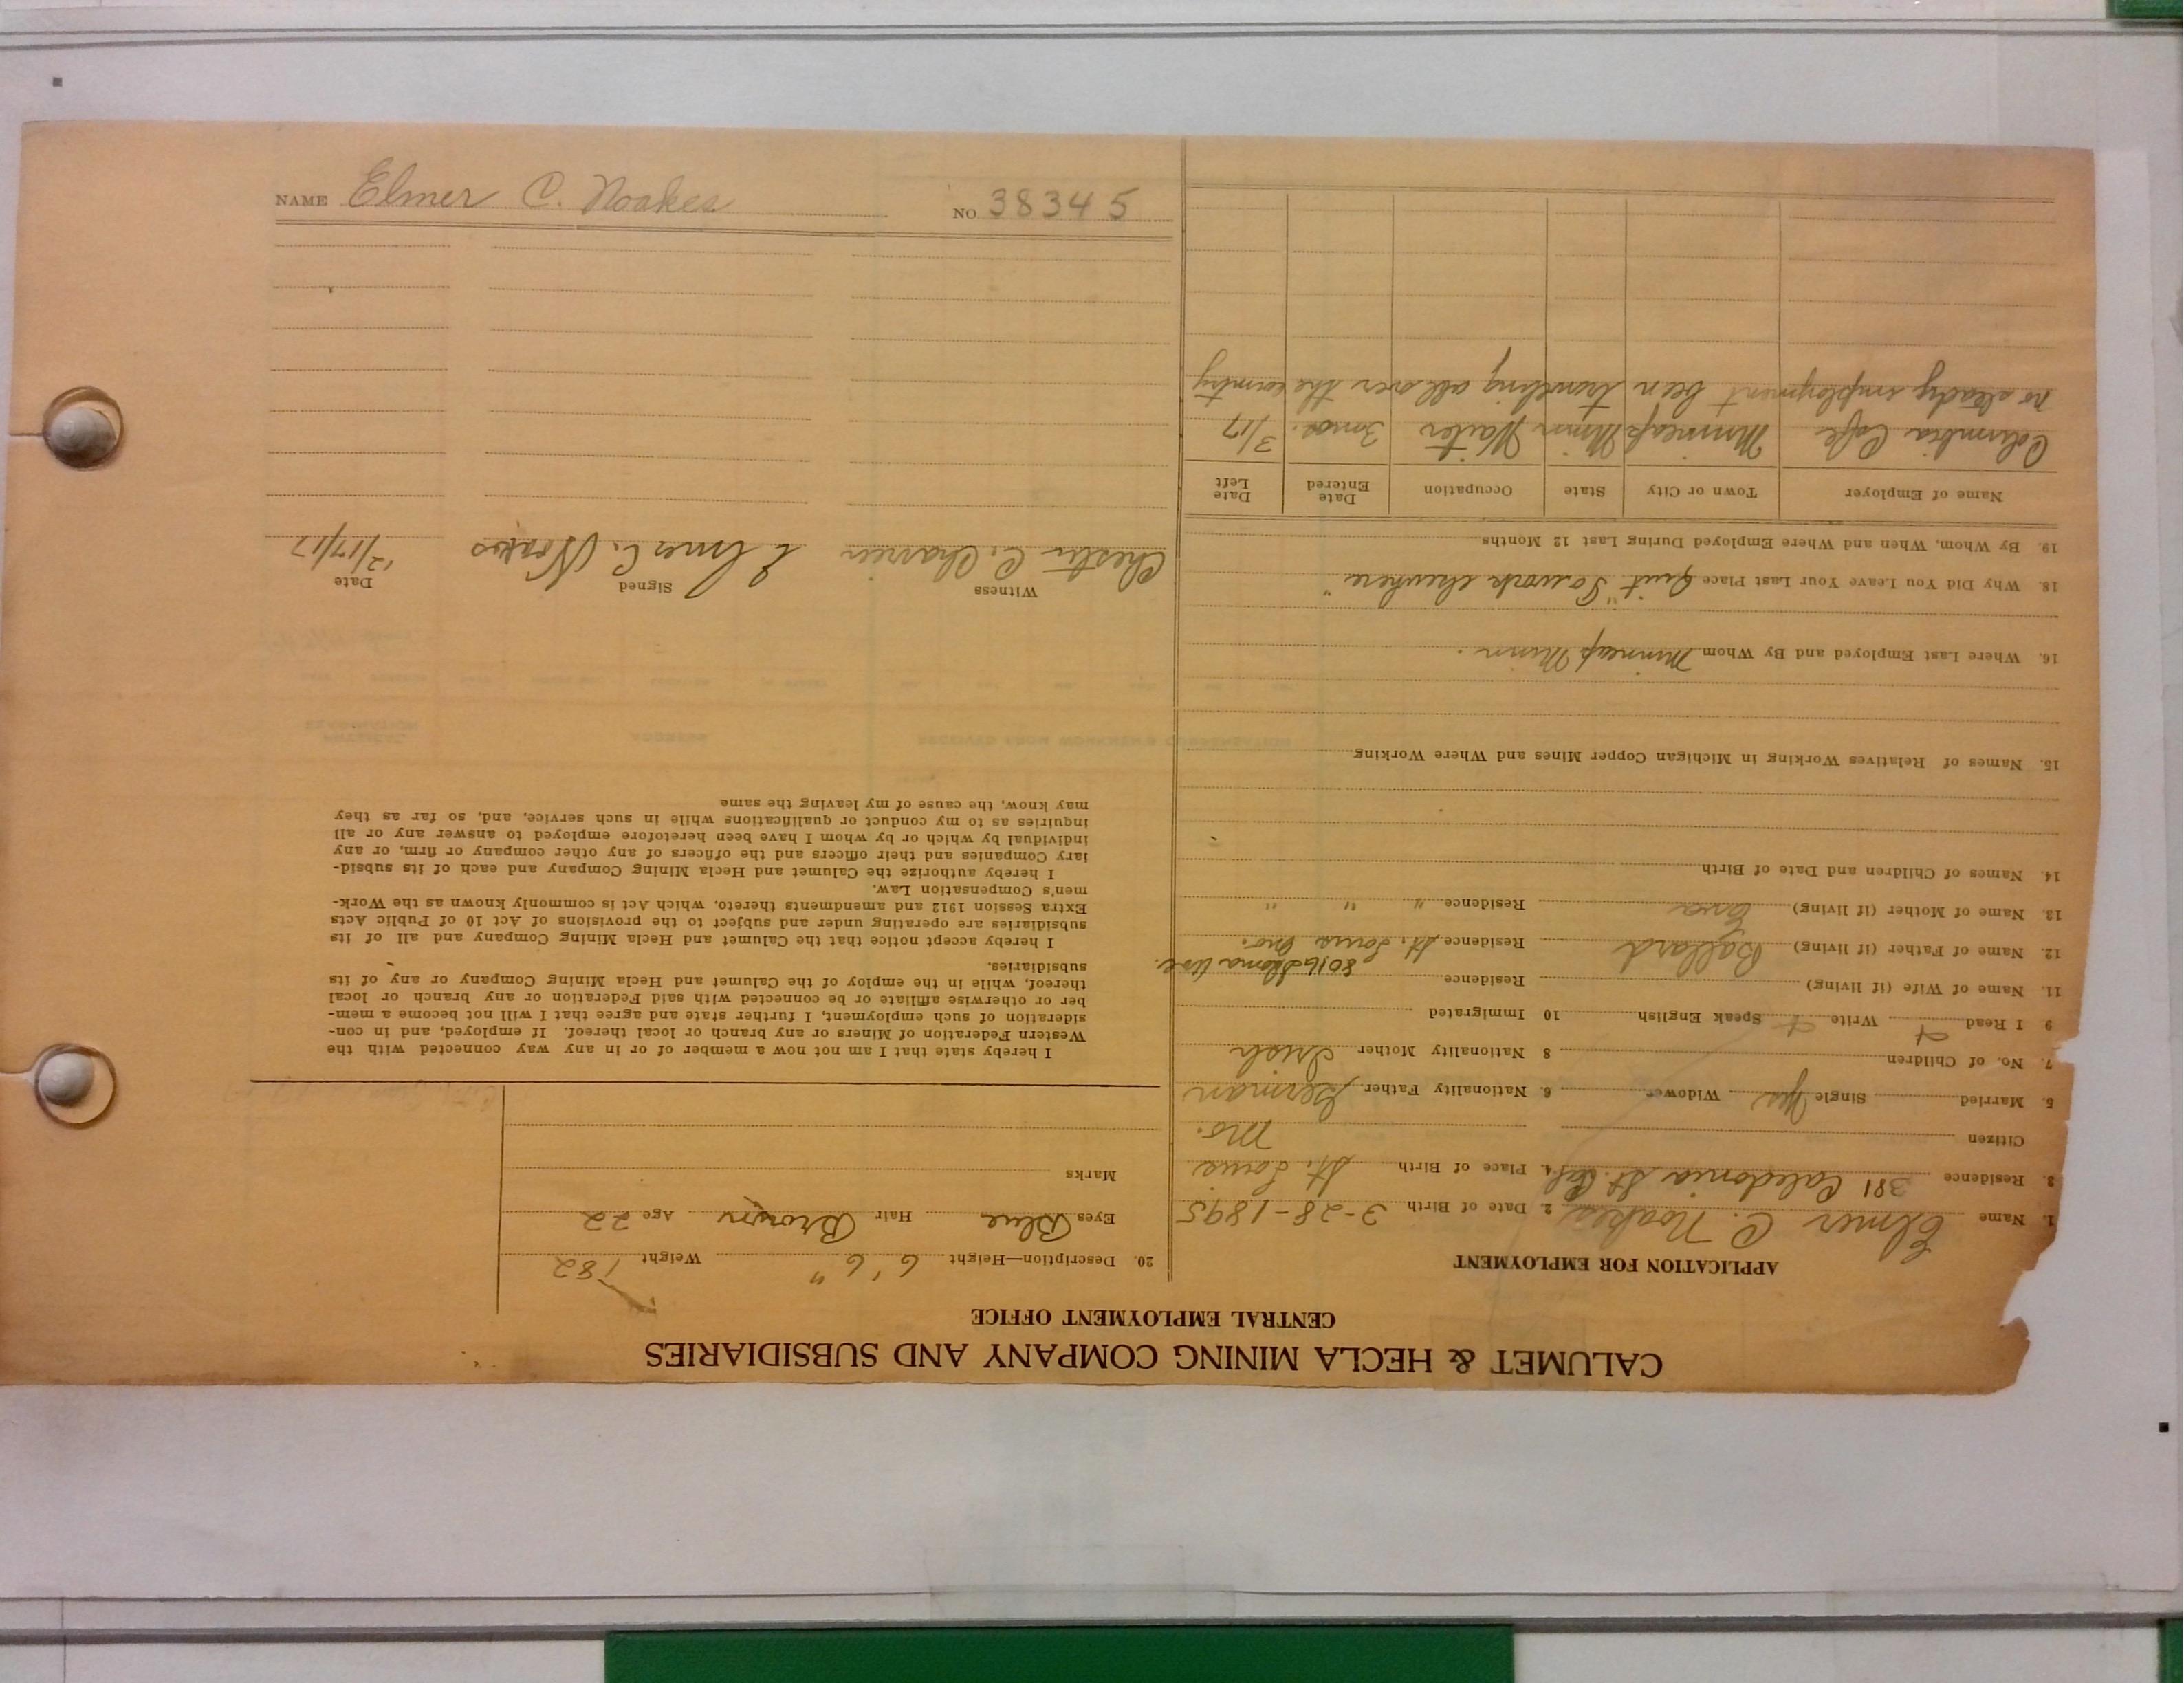 CALUMET & HECLA MINING COMPANY AND SUBSIDIARIES
CENTRAL EMPLOYMENT OFFICE
APPLICATION FOR EMPLOYMENT
1. Name Elmer C. Noakes 2. Date of Birth 3-28-1895
3. Residence 381 Caledonia St. Cal 4. Place of Birth St. Louis
Citizen Mo.
5. Married Single Yes Widower 6. Nationality Father German
7. No. of Children 8 Nationality Mother Irish
9 I Read Write Speak English 10 Immigrated
11. Name of Wife (if living) Residence
12. Name of Father (if living) Ballard Residence St. Louis Mo.
13. Name of Mother (if living) Residence " " "
14. Names of Children and Date of Birth
15. Names of Relatives Working in Michigan Copper Mines and Where Working
16. Where Last Employed and By Whom Minneap Minn.
18. Why Did You Leave Your Last Place Quit "To work elsewhere"
19. By Whom, When and Where Employed During Last 12 Months
Name of Employer Town or City State Occupation Date Entered Date Left
Columbia Cafe Minneap Minn Waiter 3 mos. 3/17
no steady employment been traveling all over the country
20. Description—Height 6' 6" Weight 182
Eyes Blue Hair Brown Age 22
Marks
I hereby state that I am not now a member of or in any way connected with the
Western Federation of Miners or any branch or local thereof. If employed, and in con-
sideration of such employment, I further state and agree that I will not become a mem-
ber or otherwise affiliate or be connected with said Federation or any branch or local
thereof, while in the employ of the Calumet and Hecla Mining Company or any of its
subsidiaries.
I hereby accept notice that the Calumet and Hecla Mining Company and all of its
subsidiaries are operating under and subject to the provisions of Act 10 of Public Acts
Extra Session 1912 and amendments thereto, which Act is commonly known as the Work-
men's Compensation Law.
I hereby authorize the Calumet and Hecla Mining Company and each of its subsid-
iary Companies and their officers and the officers of any other company or firm, or any
individual by which or by whom I have been heretofore employed to answer any or all
inquiries as to my conduct or qualifications while in such service, and, so far as they
may know, the cause of my leaving the same
Witness Signed Date
Chester C. Elmer C. Noakes 12/17/17
NAME Elmer C. Noakes NO. 38345